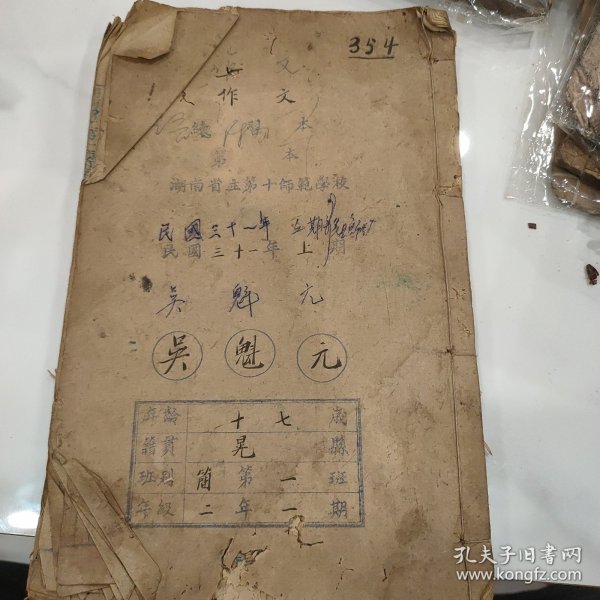 354
文
作 文
本
第 本
湖南省立第十師範學校
民國三十一年
民國三十一年 上 期
吳 魁 元
吳 魁 元
年齡 十七 歲
籍貫 晃 縣
班别 簡第一 班
年級 二年一 期
孔夫子旧书网
www.kongfz.com